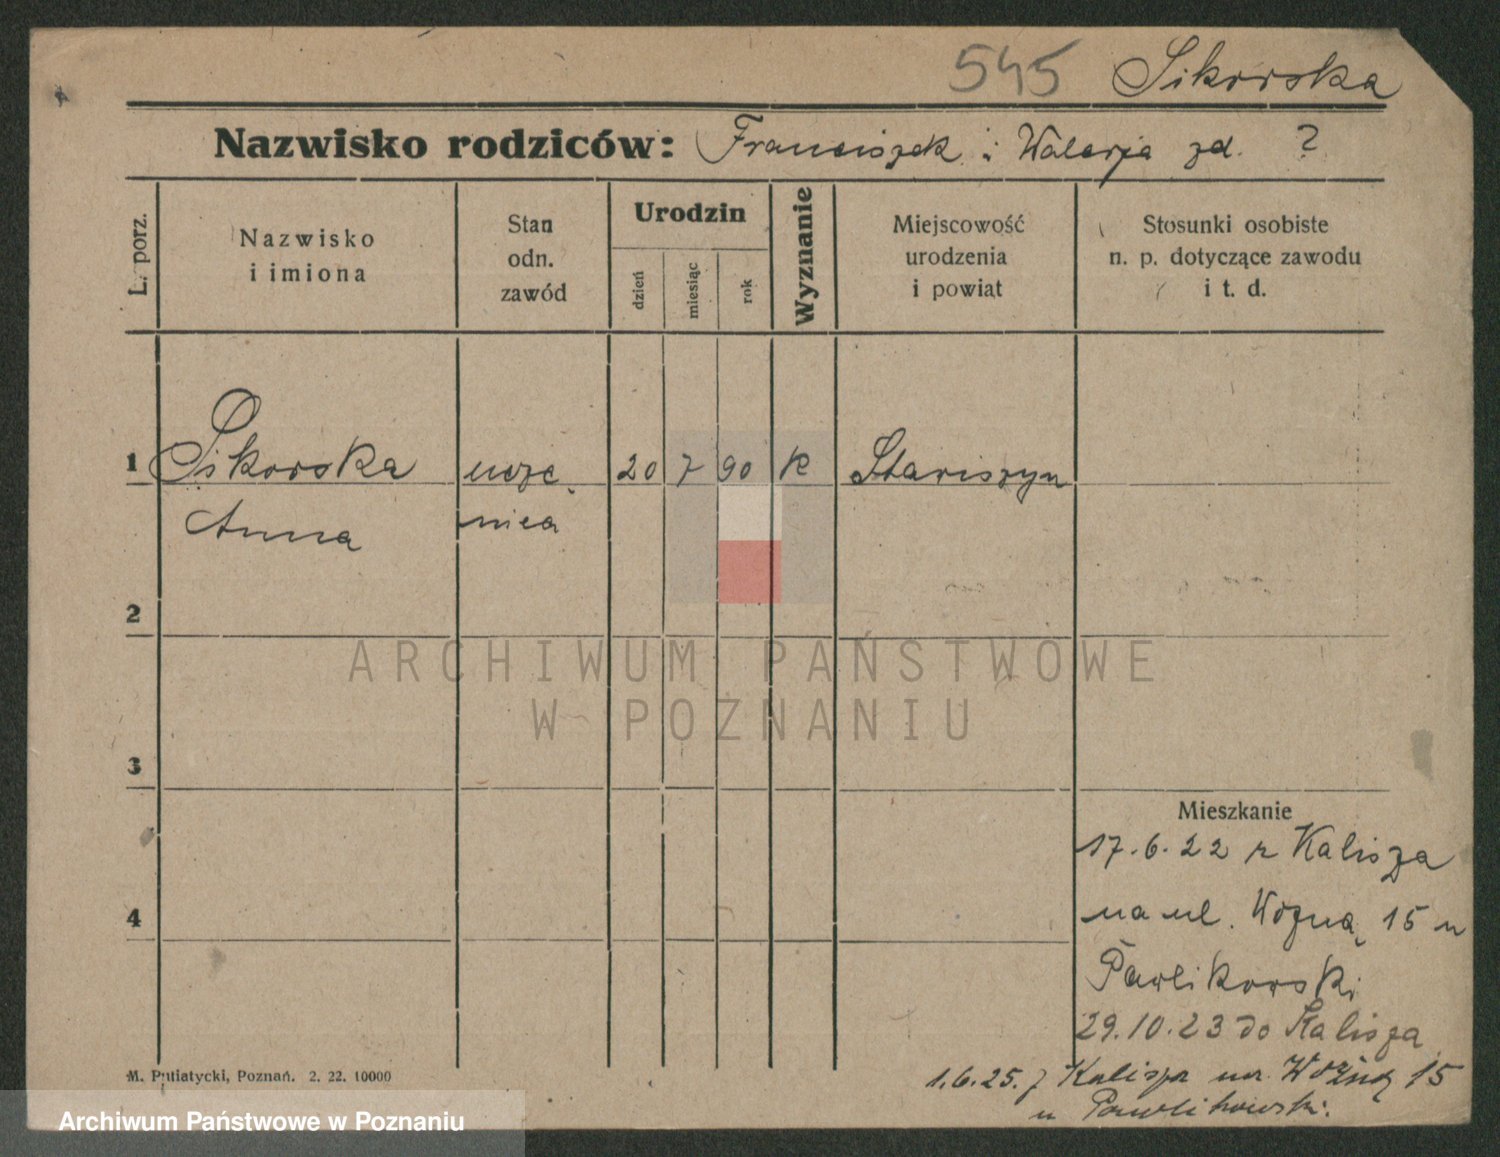 545 Sikorska
Nazwisko rodziców: Franciszek i Walerja zd. ?
L. porz.
Nazwisko
i imiona
Stan
odn.
zawód
Urodzin
dzień
miesiąc
rok
Wyznanie
Miejscowość
urodzenia
i powiat
Stosunki osobiste
n. p. dotyczące zawodu
i t. d.
1 Sikorska ucze 20 7 90 K Stawiszyn
Anna nica
2
ARCHIWUM PAŃSTWOWE
W POZNANIU
3
Mieszkanie
17.6.22 z Kalisza
4
na ul. Woźną 15 u
Pawlikowski
29.10.23 do Kalisza
1.6.25. z Kalisza na Woźną 15
u Pawlikowski.
M. Putiatycki, Poznań. 2. 22. 10000
Archiwum Państwowe w Poznaniu